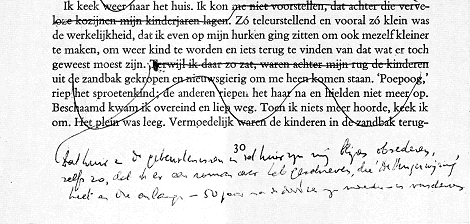 Ik keek weer naar het huis. Ik kon me niet voorstellen, dat achter die verve-
loze kozijnen mijn kinderjaren lagen. Zó teleurstellend en vooral zó klein was
de werkelijkheid, dat ik even op mijn hurken ging zitten om ook mezelf kleiner
te maken, om weer kind te worden en iets terug te vinden van dat wat er toch
geweest moest zijn. Terwijl ik daar zo zat, waren achter mijn rug de kinderen
uit de zandbak gekropen en nieuwsgierig om me heen komen staan. ‘Poepoog,’
riep het sproetenkind; de anderen riepen het haar na en hielden niet meer op.
Beschaamd kwam ik overeind en liep weg. Toen ik niets meer hoorde, keek ik
om. Het plein was leeg. Vermoedelijk waren de kinderen in de zandbak terug-
Dat huis en de gebeurtenissen in dat huis zijn mij blijven obsederen,
30
zelfs zo, dat ik er een roman over heb geschreven, die
heet en die onlangs – 50 jaar na de